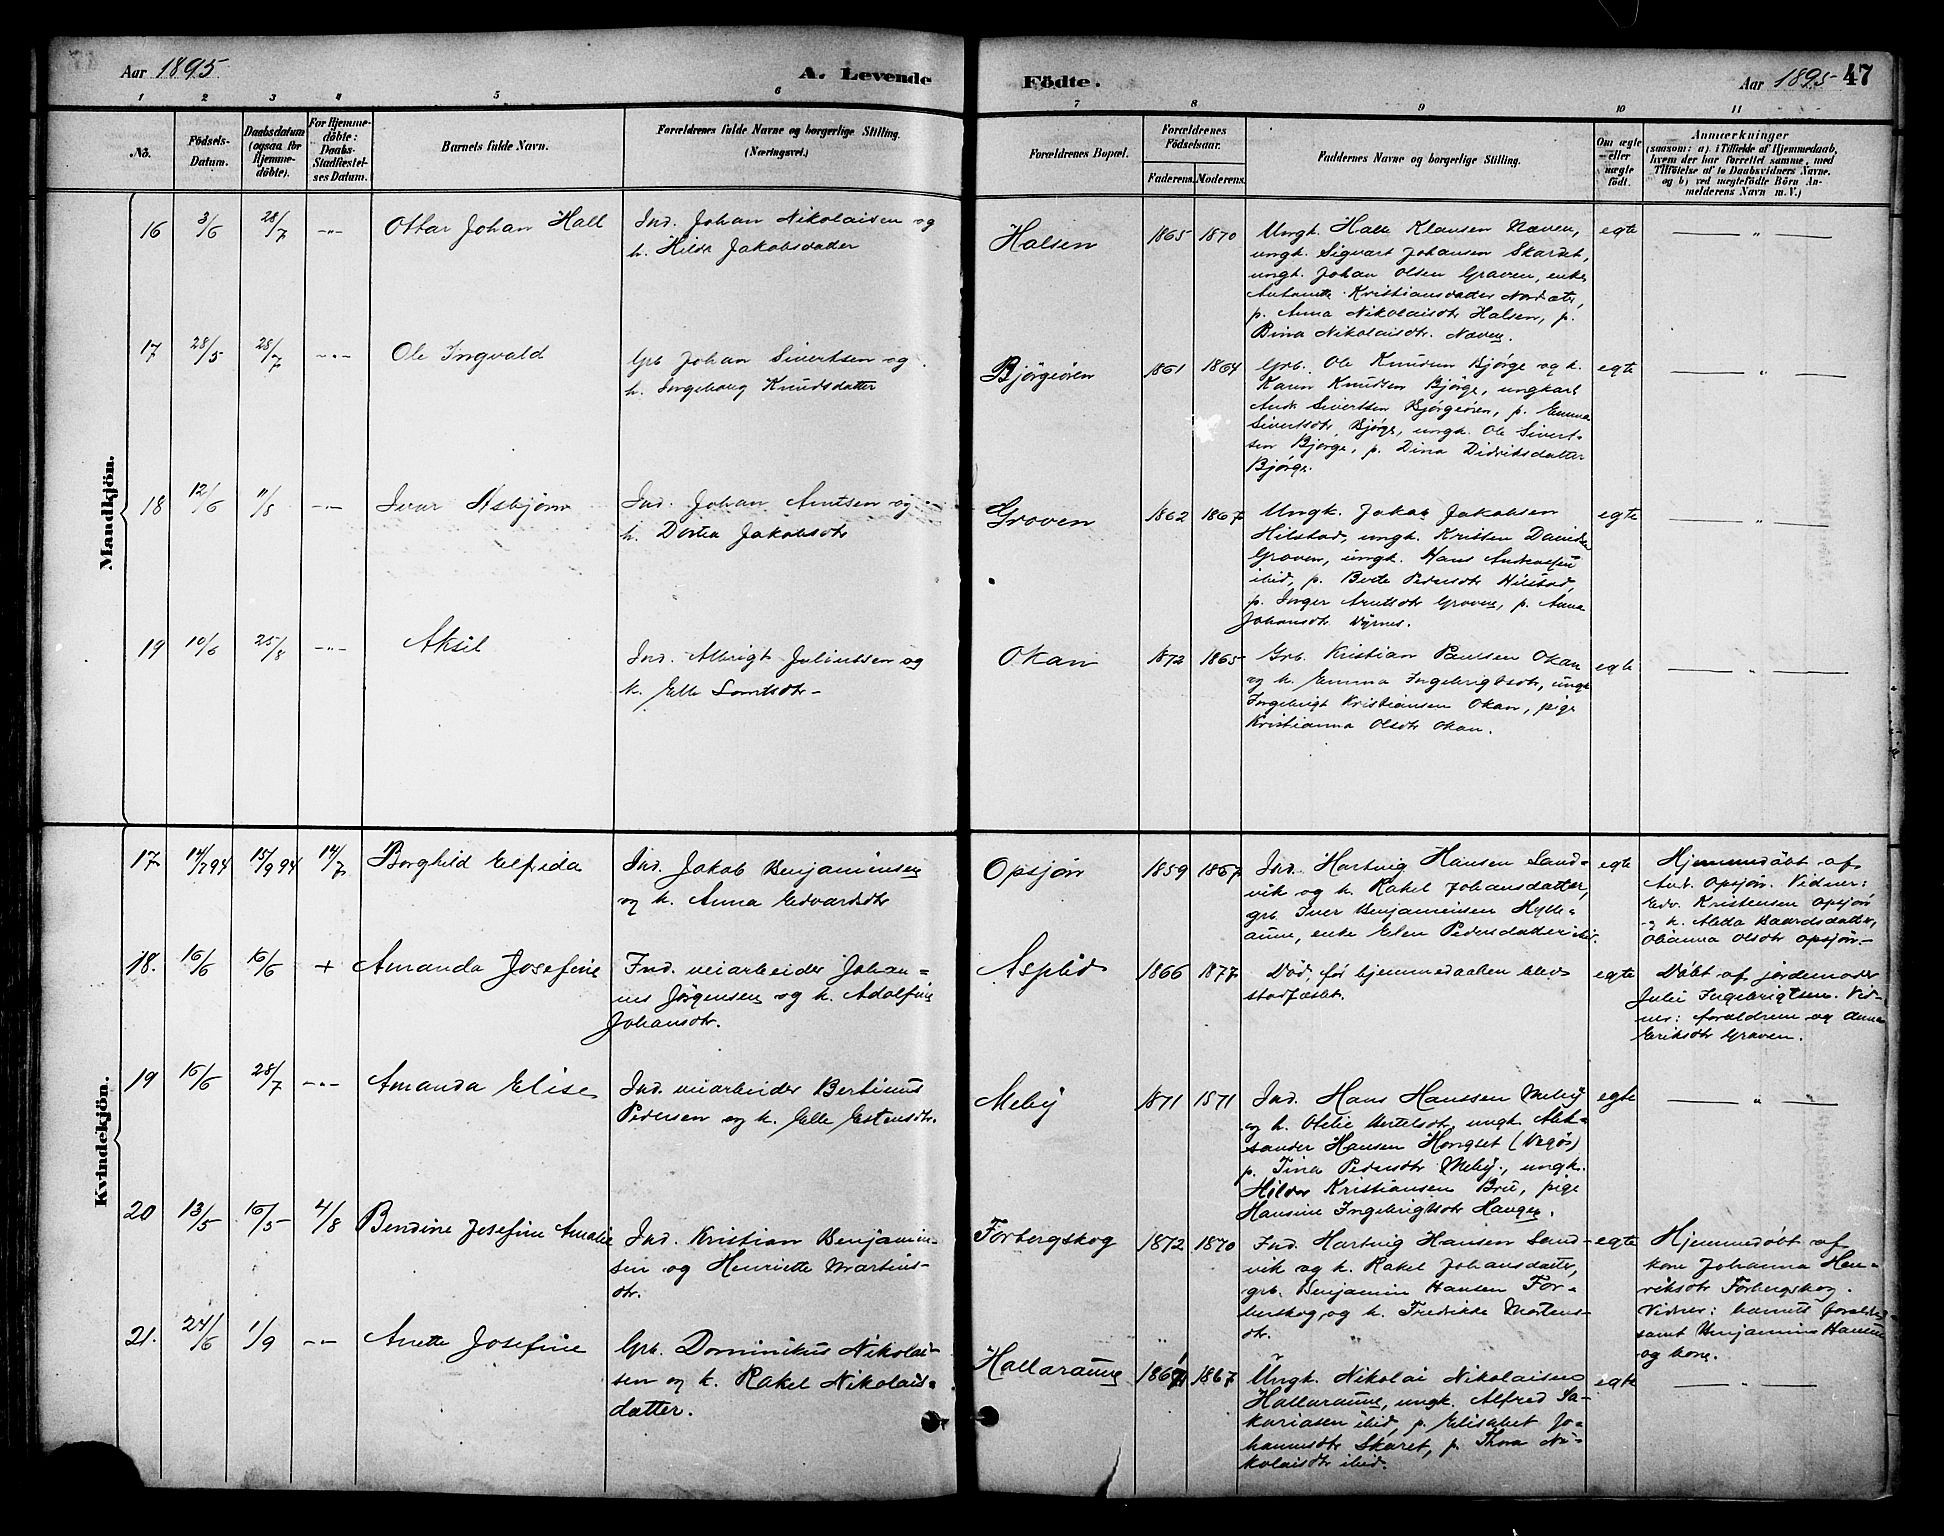 Aar 1895
A. Levende
Födte.
Aar 1895
47
1 2 3 4 5 6
7 8 9 10 11
No.
Födsels-
Datum.
Daabsdatum
(ogsaa for
Hjemme-
döbte).
For Hjemme-
döbte:
Daabs-
Stadfæstel-
ses Datum.
Barnets fulde Navn.
Forældrenes fulde Navne og borgerlige Stilling.
(Næringsvei.)
Forældrenes Bopæl.
Forældrenes
Födselsaar.
Faderens. Moderens.
Faddernes Navne og borgerlige Stilling.
Om ægte
eller
uægte
födt.
Anmærkninger
(saasom: a) i Tilfælde af Hjemmedaab,
hvem der har forrettet samme, med
Tilföielse af to Daabsvidners Navne,
og b) ved uægtefödte Börn An-
melderens Navn m. V.)
Mandkjön.
16 3/6 28/7 -"- Ottar Johan Hall
Ind. Johan Nikolaisen og
h. Hilda Jakobsdatter
Halsen 1865 1870
Ungk. Halle Klausen Næven,
ungk. Sigvart Johansen Skardet,
ungk. Johan Olsen Graven, enke
Kristiansdatter
p. Anna Nikolaisdtr Halsen, p.
Bina Nikolaisdtr. Næven.
egte — " —
17 28/5 28/7 -"- Ole Ingvald
Grb. Johan Sivertsen og
h. Ingeborg Knudsdatter
Bjørgeören 1861 1864
Grb. Ole Knudsen Bjørge og h.
Karin Knudsen Bjørge, ungkarl
Sivertsen Bjørgeören, p. Emma
Sivertsdtr Bjørge, ungk. Ole Sivert-
sen Bjørge, p. Dina Didriksdatter
Bjørge.
egte — " —
18 12/6 11/8 -"- Ivar Asbjørn
Ind. Johan Arntsen og
h. Dortea Jakobsdtr
Groven 1862 1867
Ungk. Jakob Jakobsen
Hilstad, ungk. Kristen
Graven, ungk. Hans
ibid, p. Berte Pedersdtr Hilstad,
p. Inger Arntsdtr Groven, p. Anna
Johansdtr Dyrnes.
egte — " —
19 10/6 25/8 -"- Aksil
Ind. Albrigt Juliussen og
h. Elle
Okan 1872 1865
Grb. Kristian Paulsen Okan
og h. Emma Ingebrigtsdtr, ungk
Ingebrigt Kristiansen Okan, pige
Kristianna Olsdtr Okan.
egte — " —
Kvindekjön.
17 14/7 94 15/9 94 14/7 Borghild Elfrida
Ind. Jakob Benjaminsen
og h. Anna Edvardsdtr
Opsjøn 1859 1867
Ind. Hartvig Hansen Sand-
vik og h. Rakel Johansdatter,
grb. Iver Benjaminsen Hylle-
aune, enke Elen Pedersdatter ibid.
egte
Hjemmedøbt af
Ant. Opsjøn. Vidner:
Edv. Kristensen Opsjøn
og h. Aleda Baardsdatter,
Olianna Olsdtr Opsjøn.-
18. 16/6 16/6 + Amanda Josefine
Ind. veiarbeider Johan-
nes Jørgensen og h. Adolfine
Johansdtr.
Asplid 1866 1877
Död, før hjemmedaaben blev
stadfæstet.
egte
Döbt af jordemoder
Julie Ingebrigtsen. Vid-
ner: forældrene og Anna
Eriksdtr Graven.
19 16/6 28/7 -"- Amanda Elise
Ind. veiarbeider Bertinus
Pedersen og h. Elle Estensdtr.
Meby 1871 1871
Ind. Hans Hanssen Meby
og h. Otelie Bertelsdtr, ungk. Alek-
sander Hansen Hongset (Vegøs)
p. Tina Pedersdtr Meby, ungk.
Kristiansen Bru, pige
Hansine Ingebrigtsdtr Haugen.
egte — " —
20 13/5 16/5 4/8 Bendine Josefine Amalie
Ind. Kristian Benjamin-
sen og Henriette Martins-
dtr.
Forbergskog 1872 1870
Ind. Hartvig Hansen Sand-
vik og h. Rakel Johansdatter,
grb. Benjamin Hansen For-
berskog, og h. Fredrikke Mortens-
dtr.
egte
Hjemmedøbt af
kone Johanna Hen-
riksdtr Forbergskog.
Vidner: barnets forældre
samt Benjamin Hansen
og kone.
21. 24/6 1/9 -"- Anette Josefine
Grb. Dominikus Nikolai-
sen og h. Rakel Nikolais-
datter.
Hallaraune 1867
Ungk. Nikolai Nikolaisen
Hallaraune, ungk. Alfred Sa-
kariasen ibid, p. Elisabet Jo-
hannesdtr Skaret, p. Thora Ni-
kolaisdtr ibid.
egte — " —